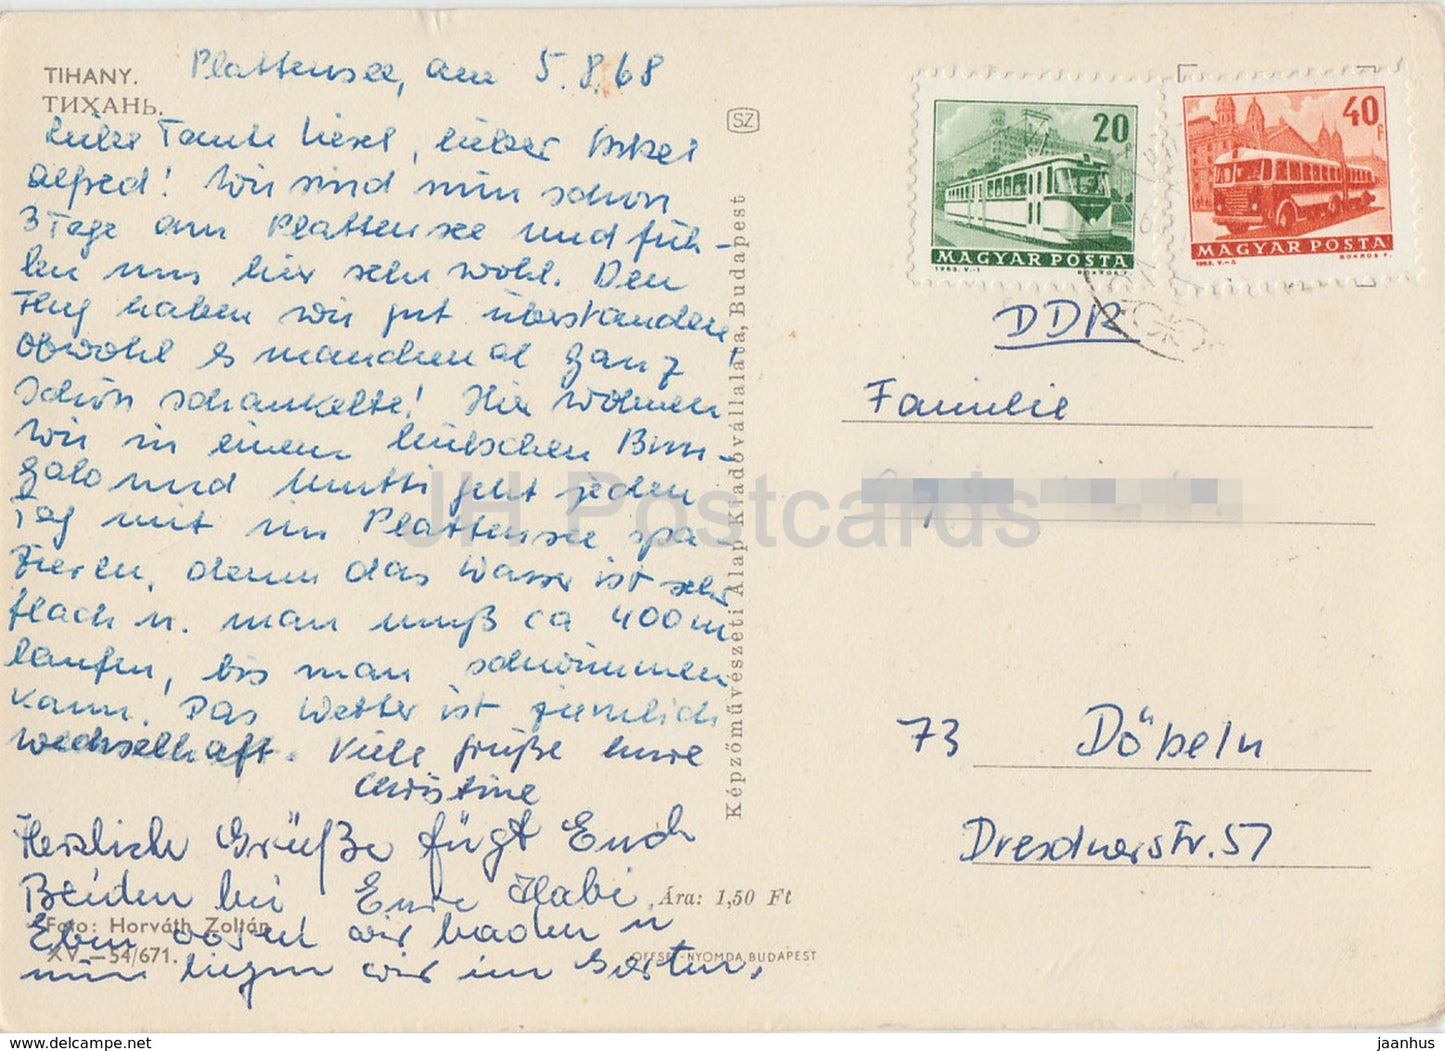 TIHANY.
ТИХАНЬ.
Plattensee, am 5.8.68
Liebe Tante Liesel, lieber Onkel
Alfred! Wir sind nun schon
3 Tage am Plattensee und füh-
len uns hier sehr wohl. Den
Flug haben wir gut überstanden,
obwohl es manchmal ganz
schön schaukelte! Hier wohnen
wir in einem hübschen Bun-
galo und Mutti geht jeden
Tag mit im Plattensee spa-
zieren, denn das Wasser ist sehr
flach u. man muß ca 400m
laufen, bis man schwimmen
kann. Das Wetter ist ziemlich
wechselhaft. Viele Grüße Eure
Christine
Herzliche Grüße fügt Euch
Beiden bei Eure Habi.
Eben waren wir baden u
nun liegen wir im Garten.
Foto: Horváth Zoltán
XV.—54/671.
SZ
Képzőművészeti Alap Kiadóvállalata, Budapest
Ára: 1,50 Ft
OFFSET-NYOMDA, BUDAPEST
20 f
MAGYAR POSTA
1963. V.-1 BOKROS F.
40 f
MAGYAR POSTA
1963. V.-5 BOKROS F.
DDR
Familie
73 Döbeln
Dresdnerstr. 57
JH Postcards
https://www.ww2postcards.com jaanhus